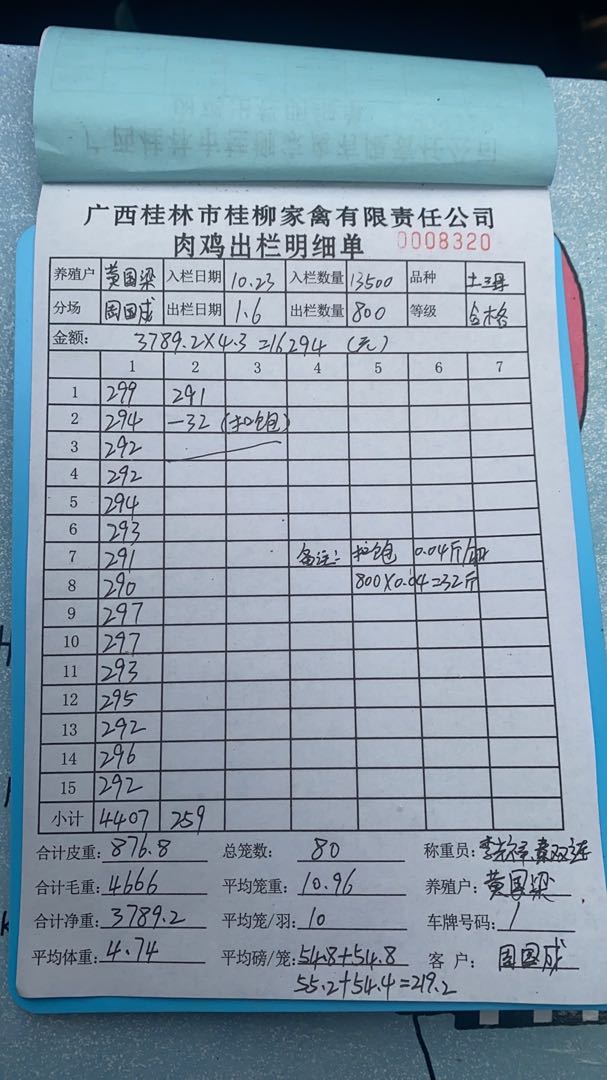 广西桂林市桂柳家禽有限责任公司
肉鸡出栏明细单 0008320
养殖户 黄国梁 入栏日期 10.23 入栏数量 13500 品种
分场 周国成 出栏日期 1.6 出栏数量 800 等级 合格
金额: 3789.2×4.3=16294 (元)
1 2 3 4 5 6 7
1 299 291
2 294 -32 (扣饱)
3 292
4 292
5 294
6 293
7 291 备注: 扣饱 0.04斤/
8 290 800×0.04=32斤
9 297
10 297
11 293
12 295
13 292
14 296
15 292
小计 4407 259
合计皮重: 876.8 总笼数: 80 称重员:
合计毛重: 4666 平均笼重: 10.96 养殖户: 黄国梁
合计净重: 3789.2 平均笼/羽: 10 车牌号码: 1
平均体重: 4.74 平均磅/笼: 54.8+54.8 客户: 周国成
55.2+54.4=219.2